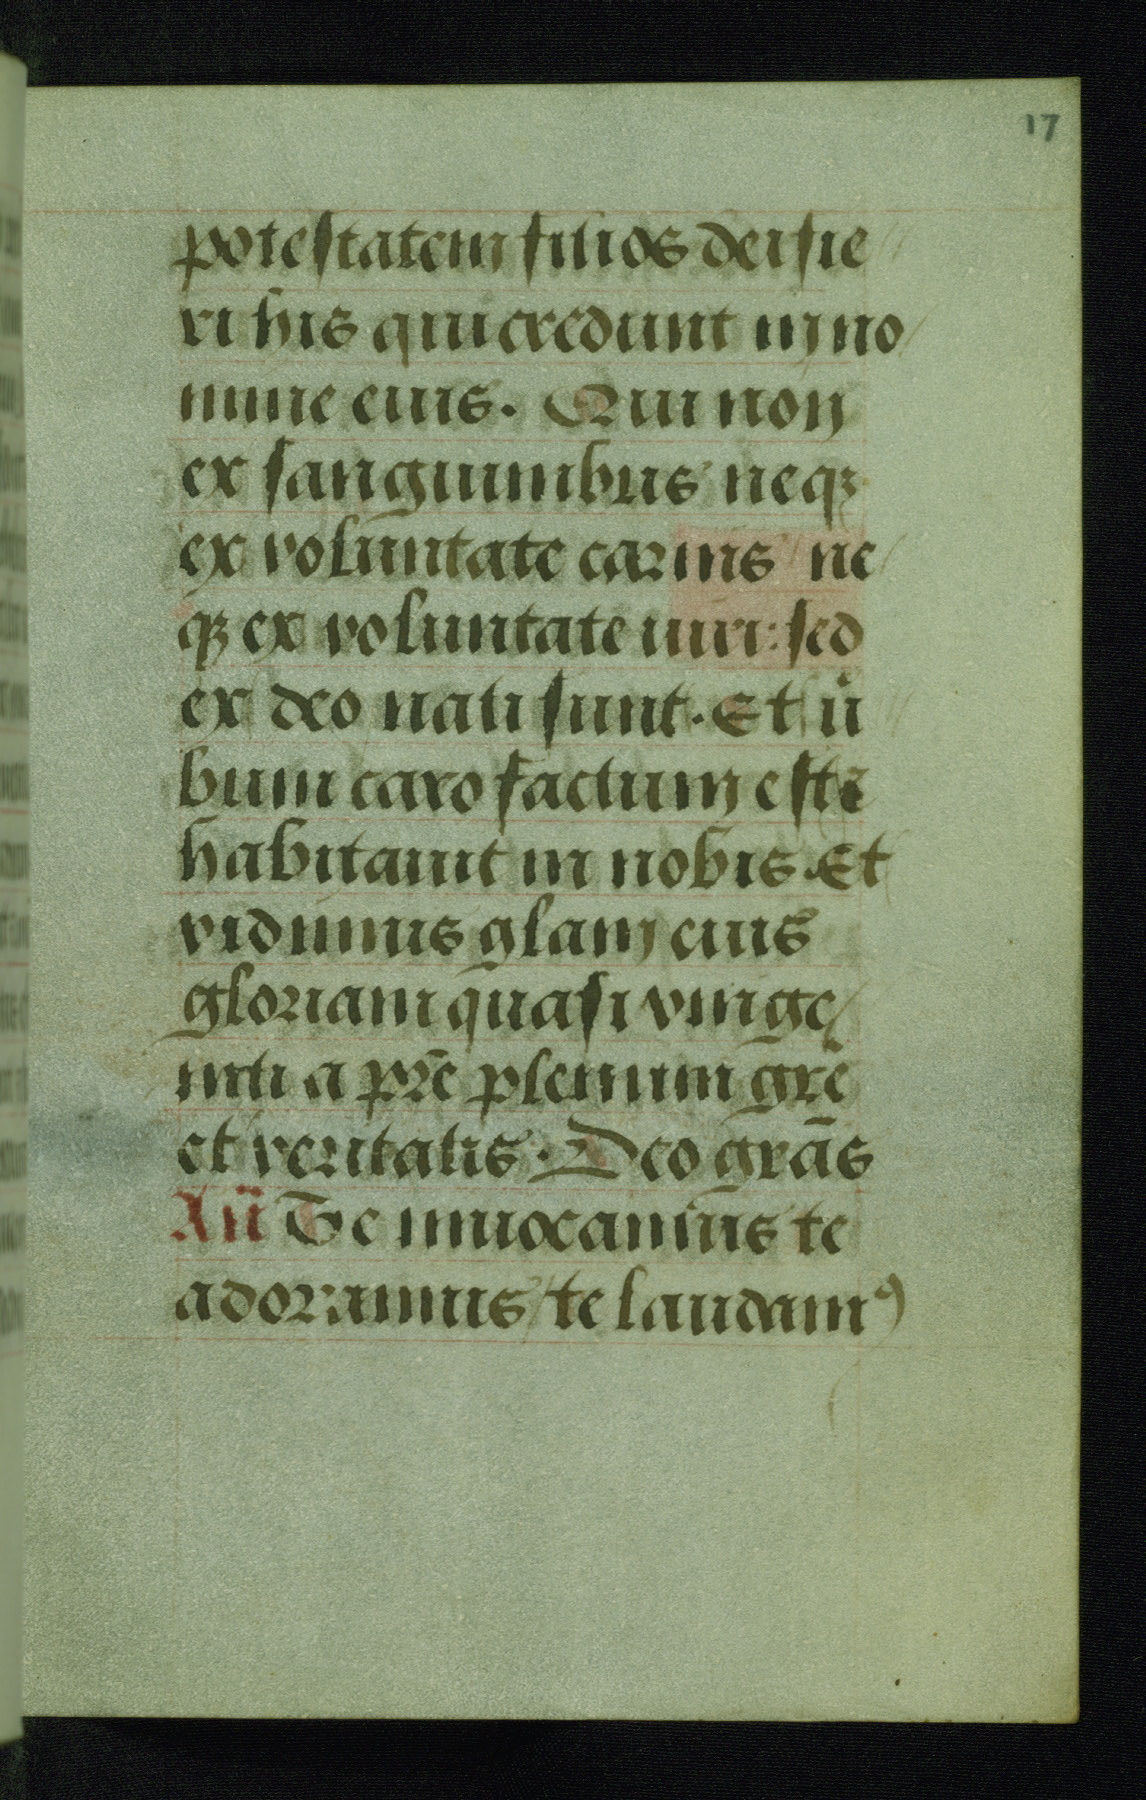 17
potestatem filios dei fie
ri his qui credunt in no
mine eius. Qui non
ex sanguinibus neqꝫ
ex voluntate carnis / ne
qꝫ ex voluntate uiri: sed
ex deo nati sunt. Et u̅
bum caro factum est ⁊
habitauit in nobis. Et
vidimus gl̅am eius
gloriam quasi vnige
niti a pr̅e plenum gr̅e
et veritatis. Deo gr̅as
An̅ Te inuocamus te
adoramus / te laudamꝰ